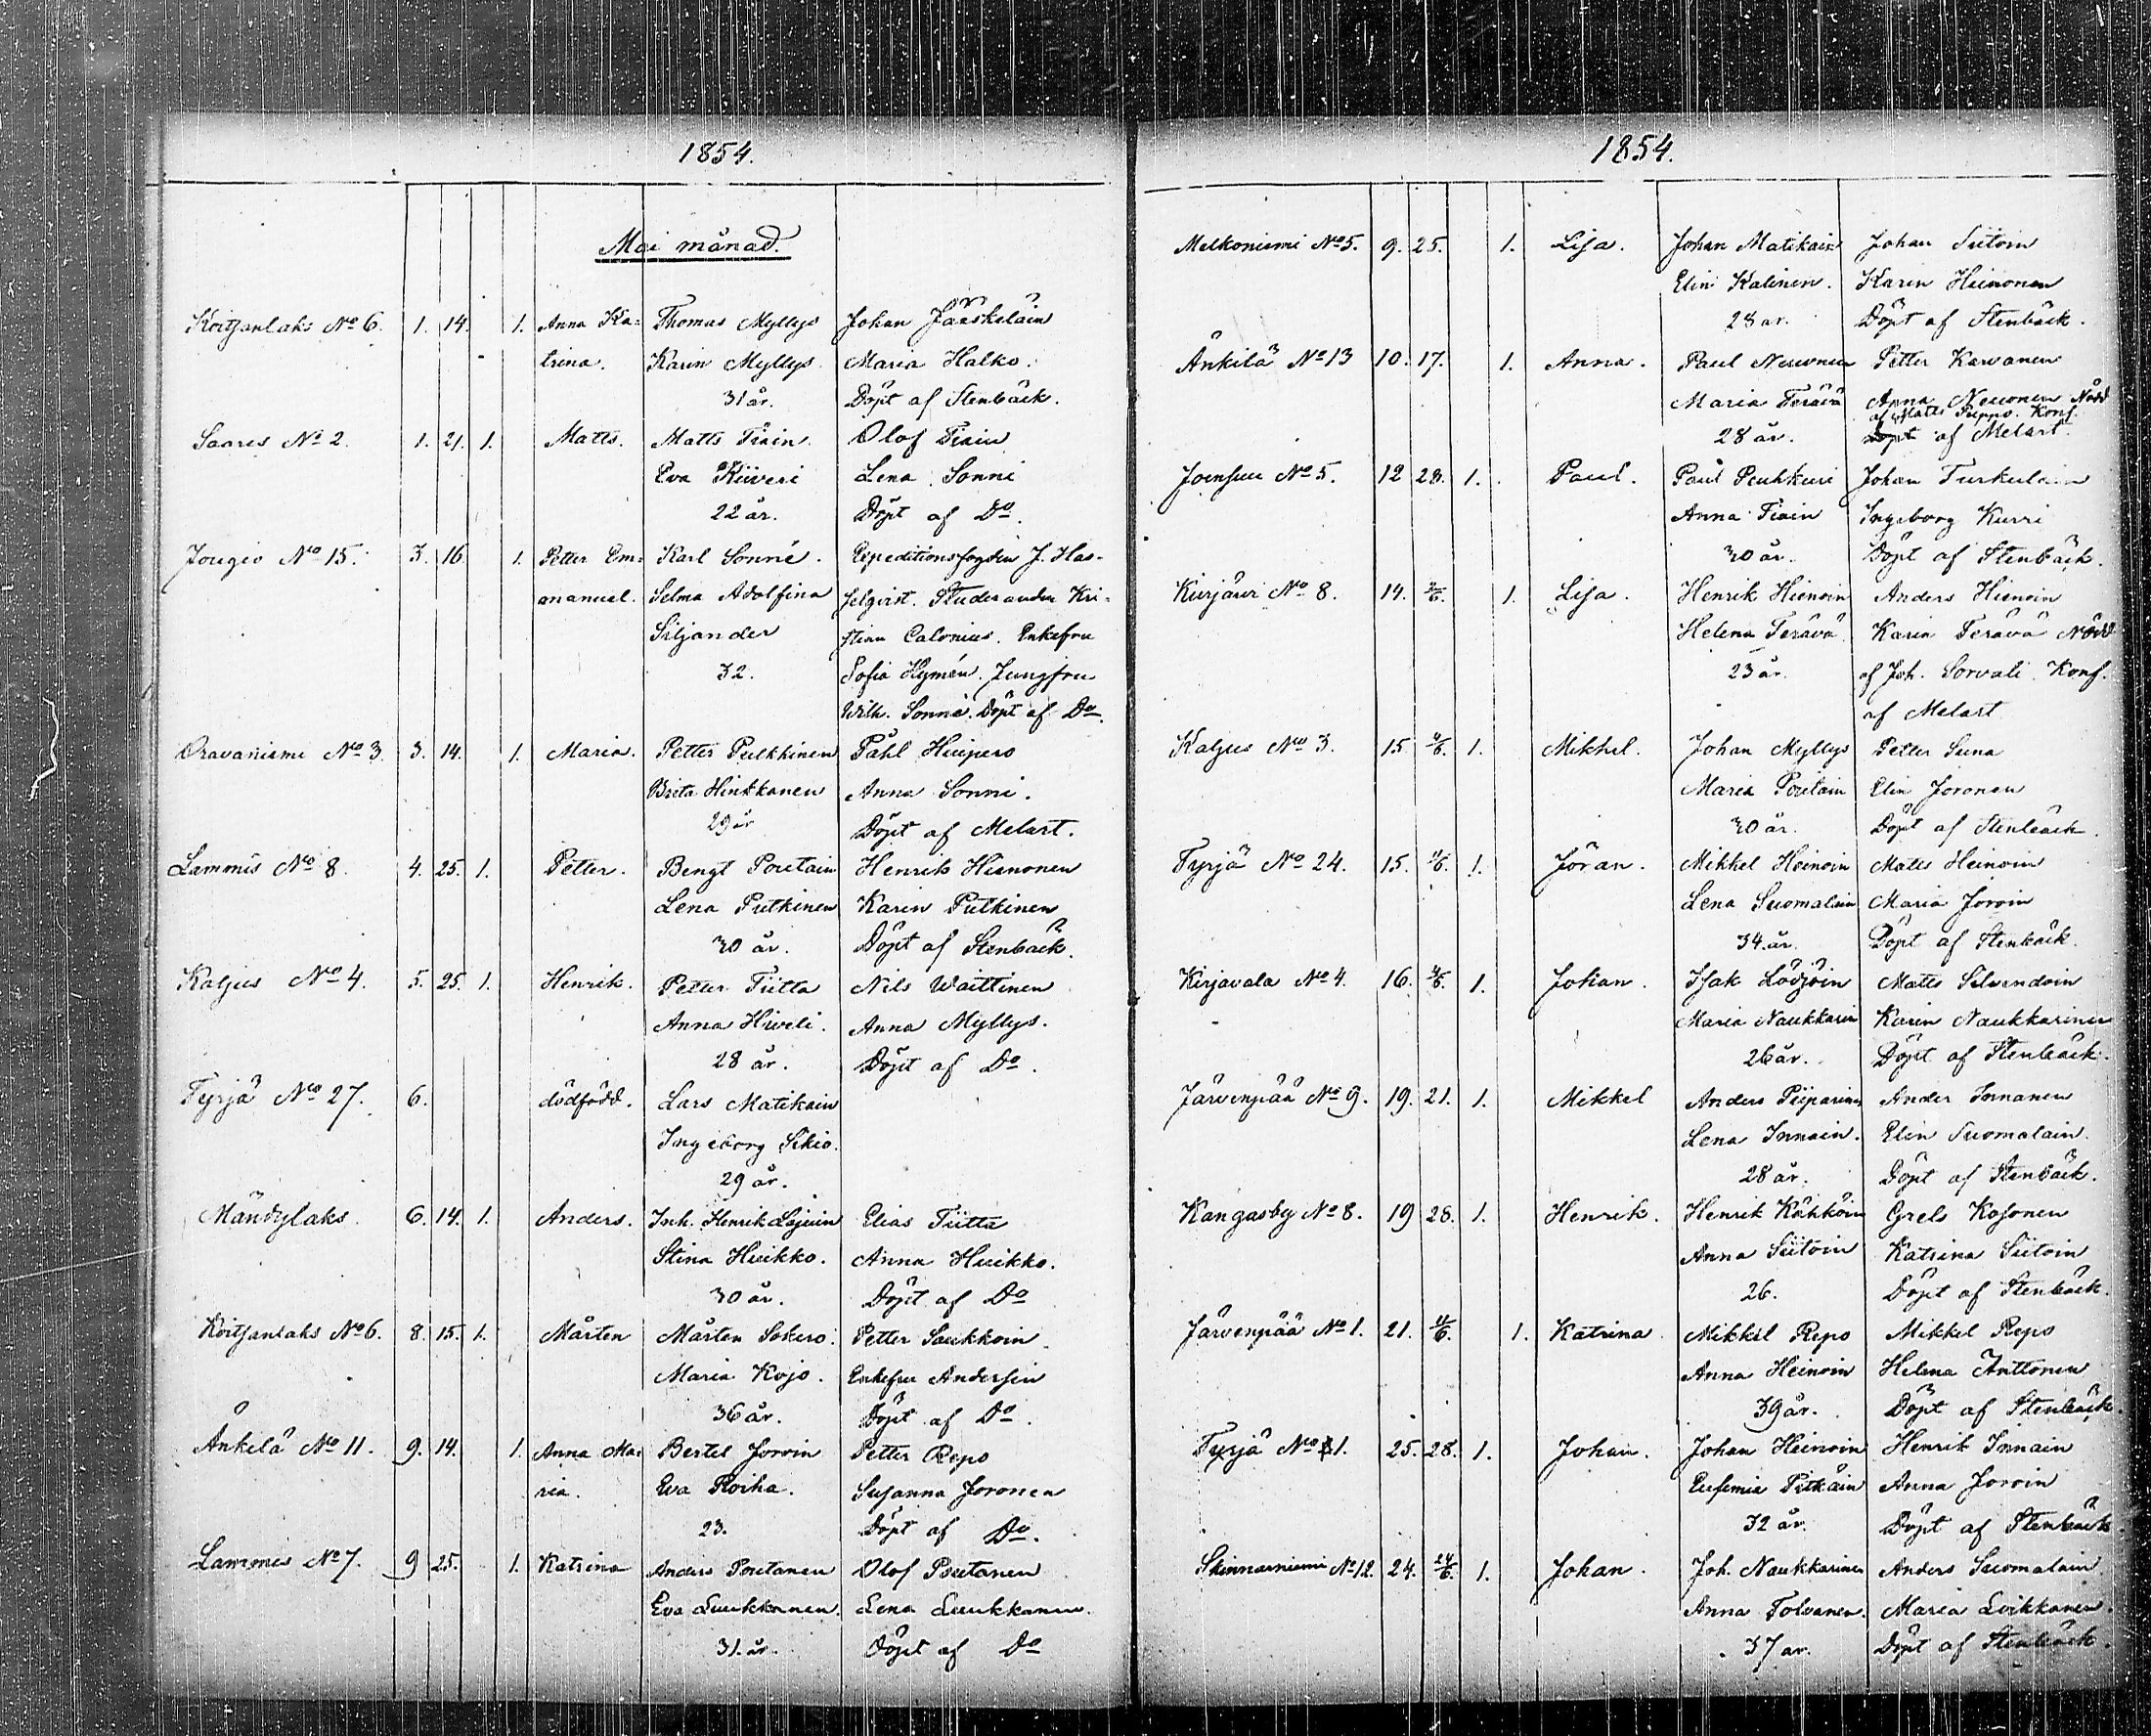 1854.
Mai månad.
Koitsanlaks No 6. 1. 14. 1. Anna Ka= Thomas Myllys Johan Jääskeläin
trina. Karin Myllys Maria Halko.
31 år. Döpt af Stenbäck.
Saares No 2. 1. 21. 1. Matts. Matts Tiain. Olof Tiain
Eva Kiiveri Lena Sonni
22 år. Döpt af Do.
Jougio No 15. 3. 16. 1. Petter Em= Karl Sonné. Expeditionsfogden J. Has-
manuel. Selma Adolfina selqvist. Studeranden Kri-
Siljander stian Calonius. Enkefru
32. Sofia Hymén. Jungfru
Wilh. Sonné. Döpt af Do.
Oravaniemi No 3. 3. 14. 1. Maria. Petter Pulkkinen Påhl
Brita Hinkkanen Anna Sonni.
29 år Döpt af Melart.
Lammis No 8. 4. 25. 1. Petter. Bengt Poutain Henrik Hienonen
Lena Putkinen Karin Putkinen
30 år. Döpt af Stenbäck.
Katjus No 4. 5. 25. 1. Henrik. Petter Tiitta Nils Waittinen
Anna Hiveli. Anna Myllys.
28 år. Döpt af Do.
Tyrjä No 27. 6. dödfödd. Lars Matikain
Ingeborg Sikio.
29 år.
Mändylaks. 6. 14. 1. Anders. Inh. Henrik Elias Tiitta
Stina Huikko. Anna Huikko.
30 år. Döpt af Do
Koitsanlaks No 6. 8. 15. 1. Mårten Mårten Petter Saukkoin
Maria Kojo. Enkefru Andersin
36 år. Döpt af Do.
Änkilä No 11. 9. 14. 1. Anna Ma= Bertel Joroin Petter Repo
ria. Eva Roiha. Susanna Joronen
23. Döpt af Do.
Lammis No 7. 9 25. 1. Katrina Anders Poutanen Olof Poutanen
Eva Luukkanen. Lena Luukkanen.
31. år. Döpt af Do
1854.
Melkoniemi No 5. 9. 25. 1. Lisa. Johan Matikain Johan Siitoin
Elin Kalinen. Karin Hienonen
28 ar. Döpt af Stenbäck.
Änkilä No 13 10. 17. 1. Anna. Paul Neuvonen Petter Karvanen
Maria Terävä Anna Neuvonen Nödd
af Matts Puppo. Konf.
28 år. Döpt af Melart.
Joensuu No 5. 12 28. 1. Paul. Paul Peuhkuri Johan Turkulain
Anna Tiain Ingeborg Kurri
30 år. Döpt af Stenbäck.
Kirjäur No 8. 14. 1. Lisa. Henrik Hienoin Anders Hienoin
Helena Terävä Karin Terävä Nödd
23 år. af Joh. Sorvali. Konf.
af Melart
Katjus No 3. 15. 4/6. 1. Mikkel. Johan Myllys Petter Suna
Maria Poutain Elin Joronen
30 år. Döpt af Stenbäck.
Tyrjä No 24. 15. 11/6. 1. Jöran. Mikkel Heinoin Matts Heinoin
Lena Suomalain Maria Joroin
34. år. Döpt af Stenbäck.
Kirjavala No 4. 16. 4/6. 1. Johan. Isak Lödjöin Matts Silvendoin
Maria Naukkarin Karin Naukkarinen
26 år. Döpt af Stenbäck.
Järvenpää No 9. 19. 21. 1. Mikkel Anders Piiparinen Ander Innanen
Lena Innain. Elin Suomalain.
28 år. Döpt af Stenbäck.
Kangasby No 8. 19 28. 1. Henrik. Henrik Kähköin Grels Kosonen
Anna Siitoin Katrina Siitoin
26. Döpt af Stenbäck.
Järvenpää No 1. 21. 11/6. 1. Katrina Mikkel Repo Mikkel Repo
Anna Heinoin Helena Anttonen
39 år. Döpt af Stenbäck.
Tyrjä No 1. 25. 28. 1. Johan. Johan Heinoin Henrik Innain
Eufemia Pitkäin Anna Joroin
32 år. Döpt af Stenbäck.
Skinnarniemi No 12. 24. 24/6. 1. Johan. Joh. Naukkarinen Anders Suomalain
Anna Tolvanen. Maria Loikkanen.
37 ar. Döpt af Stenbäck.